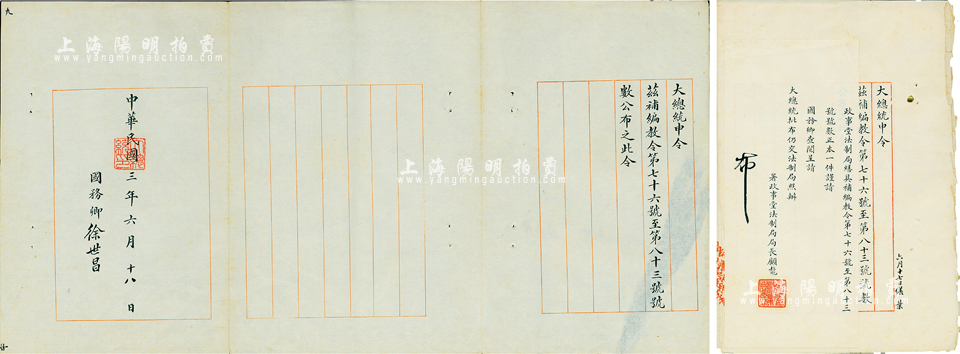 大總統申令
茲補編教令第七十六號至第八十三號號
數公布之此令
中華民國三年六月十八日
國務卿徐世昌
九
六月十七日繕
大總統申令
茲補編教令第七十六號至第八十三號號數
政事堂法制局繕具補編教令第七十六號至第八十三
號號數正本一件謹請
國務卿查閱呈請
大總統批布仍交法制局照辦
署政事堂法制局局長顧鼇
布
上海陽明拍賣
www.yangmingauction.com
上海陽明拍賣
www.yangmingauction.com
上海陽明拍賣
www.yangmingauction.com